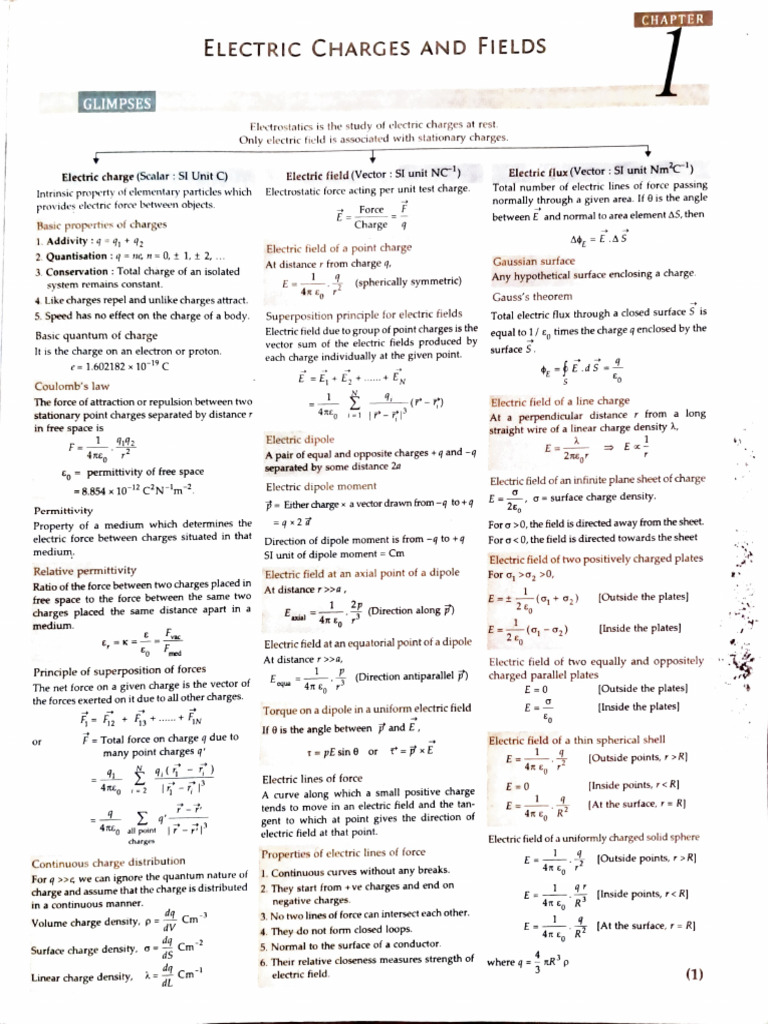 CHAPTER
1
ELECTRIC CHARGES AND FIELDS
GLIMPSES
Electrostatics is the study of electric charges at rest.
Only electric field is associated with stationary charges.
Electric charge (Scalar : SI Unit C)
Intrinsic property of elementary particles which
provides electric force between objects.
Basic properties of charges
1. Addivity : q = q₁ + q₂
2. Quantisation : q = ne, n = 0, ± 1, ± 2, ...
3. Conservation : Total charge of an isolated
system remains constant.
4. Like charges repel and unlike charges attract.
5. Speed has no effect on the charge of a body.
Basic quantum of charge
It is the charge on an electron or proton.
e = 1.602182 × 10⁻¹⁹ C
Coulomb's law
The force of attraction or repulsion between two
stationary point charges separated by distance r
in free space is
F = 1/4πε₀ . q₁q₂/r²
ε₀ = permittivity of free space
= 8.854 × 10⁻¹² C²N⁻¹m⁻².
Permittivity
Property of a medium which determines the
electric force between charges situated in that
medium.
Relative permittivity
Ratio of the force between two charges placed in
free space to the force between the same two
charges placed the same distance apart in a
medium.
εᵣ = κ = ε/ε₀ = F_vac/F_med
Principle of superposition of forces
The net force on a given charge is the vector of
the forces exerted on it due to all other charges.
F⃗₁ = F⃗₁₂ + F⃗₁₃ + ...... + F⃗₁N
or F⃗ = Total force on charge q due to
many point charges q'
= q₁/4πε₀ Σ (i = 2 to N) qᵢ(r⃗₁ – r⃗ᵢ)/|r⃗₁ – r⃗ᵢ|³
= q/4πε₀ Σ (all point charges) q' (r⃗ – r⃗')/|r⃗ – r⃗'|³
Continuous charge distribution
For q >>e, we can ignore the quantum nature of
charge and assume that the charge is distributed
in a continuous manner.
Volume charge density, ρ = dq/dV Cm⁻³
Surface charge density, σ = dq/dS Cm⁻²
Linear charge density, λ = dq/dL Cm⁻¹
Electric field (Vector : SI unit NC⁻¹)
Electrostatic force acting per unit test charge.
E⃗ = Force/Charge = F⃗/q
Electric field of a point charge
At distance r from charge q,
E = 1/4πε₀ . q/r² (spherically symmetric)
Superposition principle for electric fields
Electric field due to group of point charges is the
vector sum of the electric fields produced by
each charge individually at the given point.
E⃗ = E⃗₁ + E⃗₂ + ...... + E⃗N
= 1/4πε₀ Σ (i = 1 to N) qᵢ/|r⃗ – r⃗ᵢ|³ (r⃗ – r⃗ᵢ)
Electric dipole
A pair of equal and opposite charges + q and –q
separated by some distance 2a
Electric dipole moment
p⃗ = Either charge × a vector drawn from –q to + q
= q × 2 a⃗
Direction of dipole moment is from –q to +q
SI unit of dipole moment = Cm
Electric field at an axial point of a dipole
At distance r >>a ,
E_axial = 1/4πε₀ . 2p/r³ (Direction along p⃗)
Electric field at an equatorial point of a dipole
At distance r >>a,
E_equa = 1/4πε₀ . p/r³ (Direction antiparallel p⃗)
Torque on a dipole in a uniform electric field
If θ is the angle between p⃗ and E⃗,
τ = pE sin θ or τ⃗ = p⃗ × E⃗
Electric lines of force
A curve along which a small positive charge
tends to move in an electric field and the tan-
gent to which at point gives the direction of
electric field at that point.
Properties of electric lines of force
1. Continuous curves without any breaks.
2. They start from +ve charges and end on
negative charges.
3. No two lines of force can intersect each other.
4. They do not form closed loops.
5. Normal to the surface of a conductor.
6. Their relative closeness measures strength of
electric field.
Electric flux (Vector : SI unit Nm²C⁻¹)
Total number of electric lines of force passing
normally through a given area. If θ is the angle
between E⃗ and normal to area element ΔS, then
Δϕ_E = E⃗ . Δ S⃗
Gaussian surface
Any hypothetical surface enclosing a charge.
Gauss's theorem
Total electric flux through a closed surface S⃗ is
equal to 1/ ε₀ times the charge q enclosed by the
surface S⃗.
ϕ_E = ∮_S E⃗ . d S⃗ = q/ε₀
Electric field of a line charge
At a perpendicular distance r from a long
straight wire of a linear charge density λ,
E = λ/2πε₀r ⇒ E ∝ 1/r
Electric field of an infinite plane sheet of charge
E = σ/2ε₀ , σ = surface charge density.
For σ >0, the field is directed away from the sheet.
For σ < 0, the field is directed towards the sheet
Electric field of two positively charged plates
For σ₁ >σ₂ >0,
E = ± 1/2ε₀ (σ₁ + σ₂) [Outside the plates]
E = 1/2ε₀ (σ₁ – σ₂) [Inside the plates]
Electric field of two equally and oppositely
charged parallel plates
E = 0 [Outside the plates]
E = σ/ε₀ [Inside the plates]
Electric field of a thin spherical shell
E = 1/4πε₀ . q/r² [Outside points, r > R]
E = 0 [Inside points, r < R]
E = 1/4πε₀ . q/R² [At the surface, r = R]
Electric field of a uniformly charged solid sphere
E = 1/4πε₀ . q/r² [Outside points, r > R]
E = 1/4πε₀ . qr/R³ [Inside points, r < R]
E = 1/4πε₀ . q/R² [At the surface, r = R]
where q = 4/3 πR³ ρ
(1)